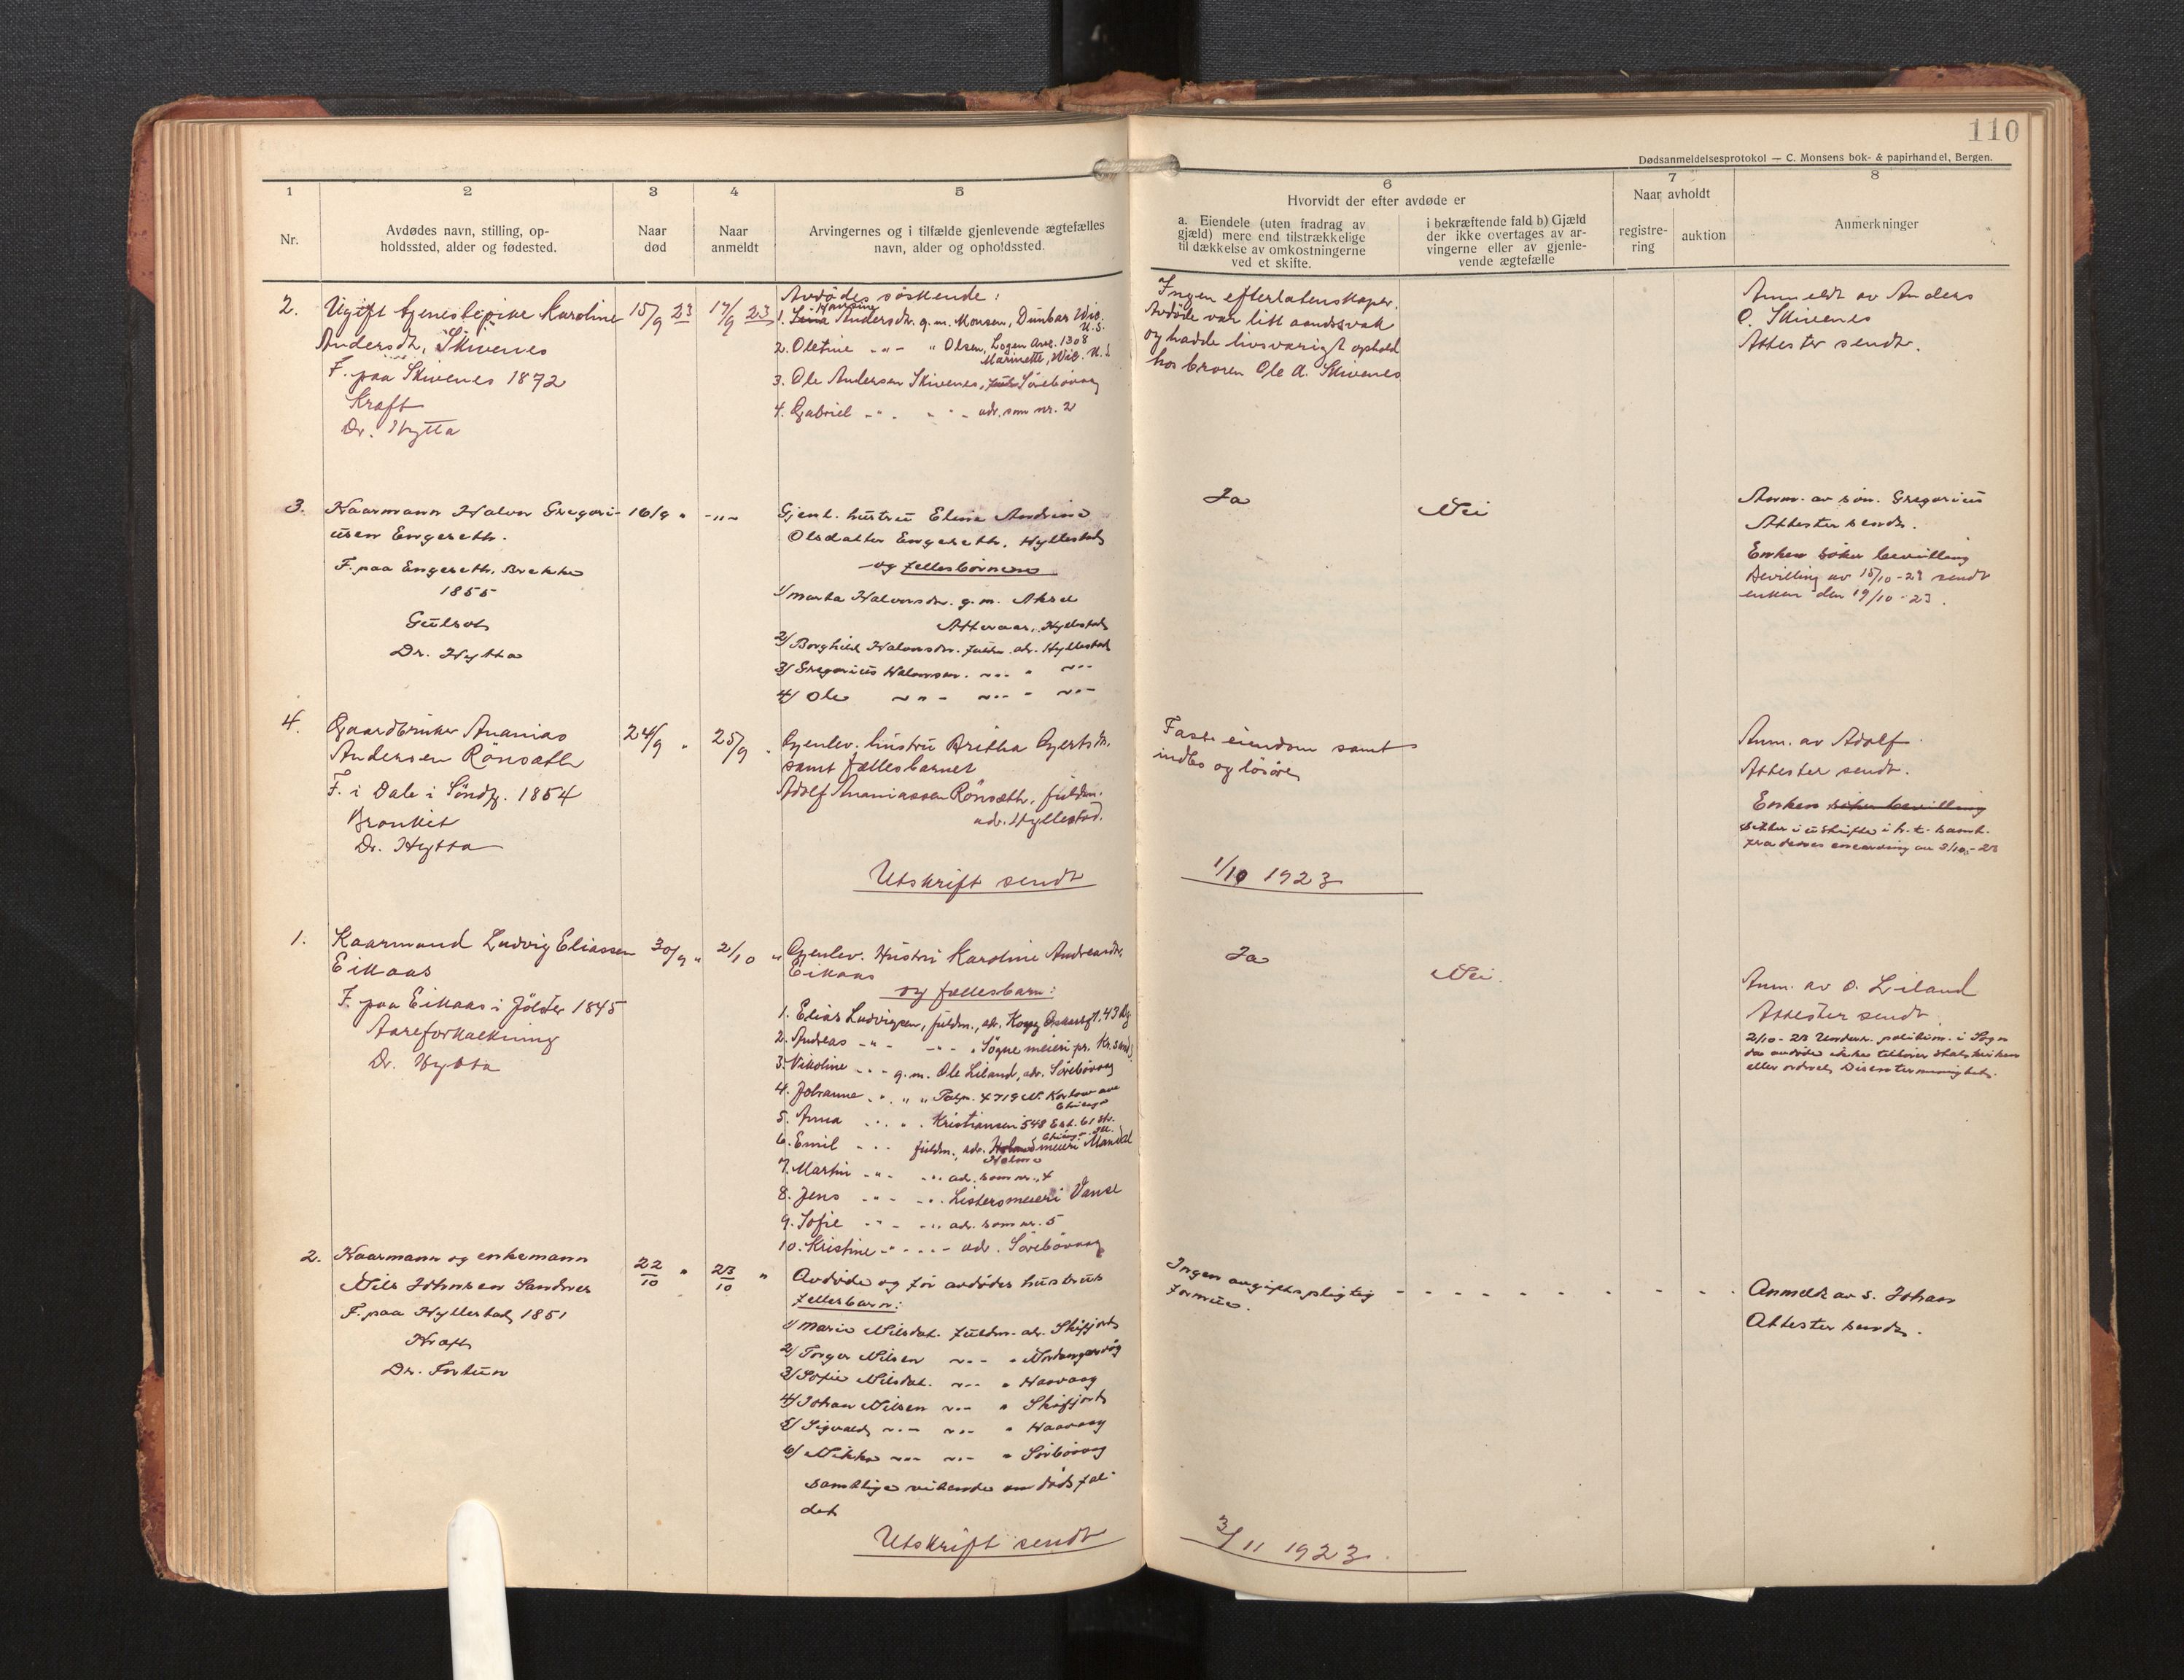 110
Dødsanmeldelsesprotokol — C. Monsens bok- & papirhandel, Bergen.
1
Nr.
2
Avdødes navn, stilling, op-
holdssted, alder og fødested.
3
Naar
død
4
Naar
anmeldt
5
Arvingernes og i tilfælde gjenlevende ægtefælles
navn, alder og opholdssted.
6
Hvorvidt der efter avdøde er
a. Eiendele (uten fradrag av
gjæld) mere end tilstrækkelige
til dækkelse av omkostningerne
ved et skifte.
i bekræftende fald b) Gjæld
der ikke overtages av ar-
vingerne eller av gjenle-
vende ægtefælle
7
Naar avholdt
registre-
ring
auktion
8
Anmerkninger
2.
Ugift tjenestepike Karoline
Andersdtr, Skivenes
F. paa Skivenes 1872
Kræft
Dr. Hytta
15/9 23
17/9 23
Avdødes søskende:
1. Hansine Andersdtr. g.m. Monsen, Dunbar Wic.
U.S.
2. Oletine -"- " Olsen, Logen Ave. 1308
Marinette, Wic. U.S
3. Ole Andersen Skivenes, Sørebøvaag
4. Gabriel -"- -"- adr. som nr. 2
Ingen efterlatenskaper.
Avdøde var litt aandssvak
og hadde livsvarigt ophold
hos broren Ole A. Skivenes
Anmeldt av Anders
O. Skivenes
Attester sendt.
3.
Kaarmann Halvor Gregori-
usen Engeseth.
F. paa Engeseth, Brekke
1855
Gulsot
Dr. Hytta
16/9 "
-"-
Gjenl. hustru Eline Andrine
Olsdatter Engeseth, Hyllestad
og fellesbørnene
1/ Marta Halvorsdtr. g.m. Aksel
Atteraas, Hyllestad
2/ Borghild Halvorsdtr. fuldm. adr. Hyllestad
3/ Gregorius Halvorsen. -"- " -"-
4/ Ole -"- -"- " -"-
Ja
Nei
Anm. av søn. Gregorius
Attester sendt.
Enken søker bevilling
Bevilling av 15/10-23 sendt
enken den 19/10-23.
4.
Gaardbruker Ananias
Andersen Rönsæth
F. i Dale i Söndfj. 1854
Bronkit
Dr. Hytta
24/9 "
25/9 "
Gjenlev. hustru Britha Gjertsdtr.
samt fællesbarnet
Adolf Ananiassen Rönsæth, fuldm.
adr. Hyllestad.
Fast eiendom samt
indbo og lösöre
Anm. av Adolf
Attester sendt.
Enken søker bevilling
sitter i uskifte i h.t. samt.
fra denne 3/10-23
Utskrift sendt 1/10 1923
1.
Kaarmand Ludvig Eliassen
Eikaas
F. paa Eikaas i Jölster 1845
Aareforkalkning
Dr. Hytta
30/9 "
2/10 "
Gjenlev. Hustru Karoline Andreasdtr.
Eikaas
og fællesbarn:
1. Elias Ludvigsen, fuldm., adr. Kong Oskarsgt. 43 Bg.
2. Andreas -"- -"- " Søgne meieri pr. Kr.sand
3. Nikoline -"- g.m. Ole Liland, adr. Sørebøvaag
4. Johanne -"- " " 4719 N. Karlov ave
Chicago
5. Anna -"- " Kristiansen 548 East. 61 str.
Chicago Ill.
6. Emil -"- fuldm., adr. Holme meieri Mandal
7. Martin -"- -"- adr. som nr. 4
8. Jens -"- -"- Listersmeieri Vanse
9. Sofie -"- -"- adr. som nr. 5
10. Kristine -"- -"- adr. Sørebøvaag
Ja
Nei.
Anm. av O. Liland
Attester sendt.
2/10-23 Underr. politim. i Sogn
da avdøde ikke tilhører statskirken
eller ordnet Dissentermenighet.
2.
Kaarmann og enkemann
Nils Johnsen Sandnes
F. paa Hyllestad 1851
Kræft
Dr. Fortun
22/10 "
23/10 "
Avdøde og før avdødes hustrus
fellesbarn:
1/ Marie Nilsdat. fuldm. adr. Skifjord
2/ Torger Nilsen -"- " Nordangervåg
3/ Sofie Nilsdat. -"- " Haavaag
4/ Johan Nilsen -"- " Skifjord
5/ Sigvald -"- -"- " Haavaag
6/ Mikke -"- -"- " Sørbøvaag
samtlige vitende om dødsfal-
det
Ingen avgiftspligtig
formue.
Anmeldt av s. Johan
Attester sendt.
Utskrift sendt 3/11 1923.